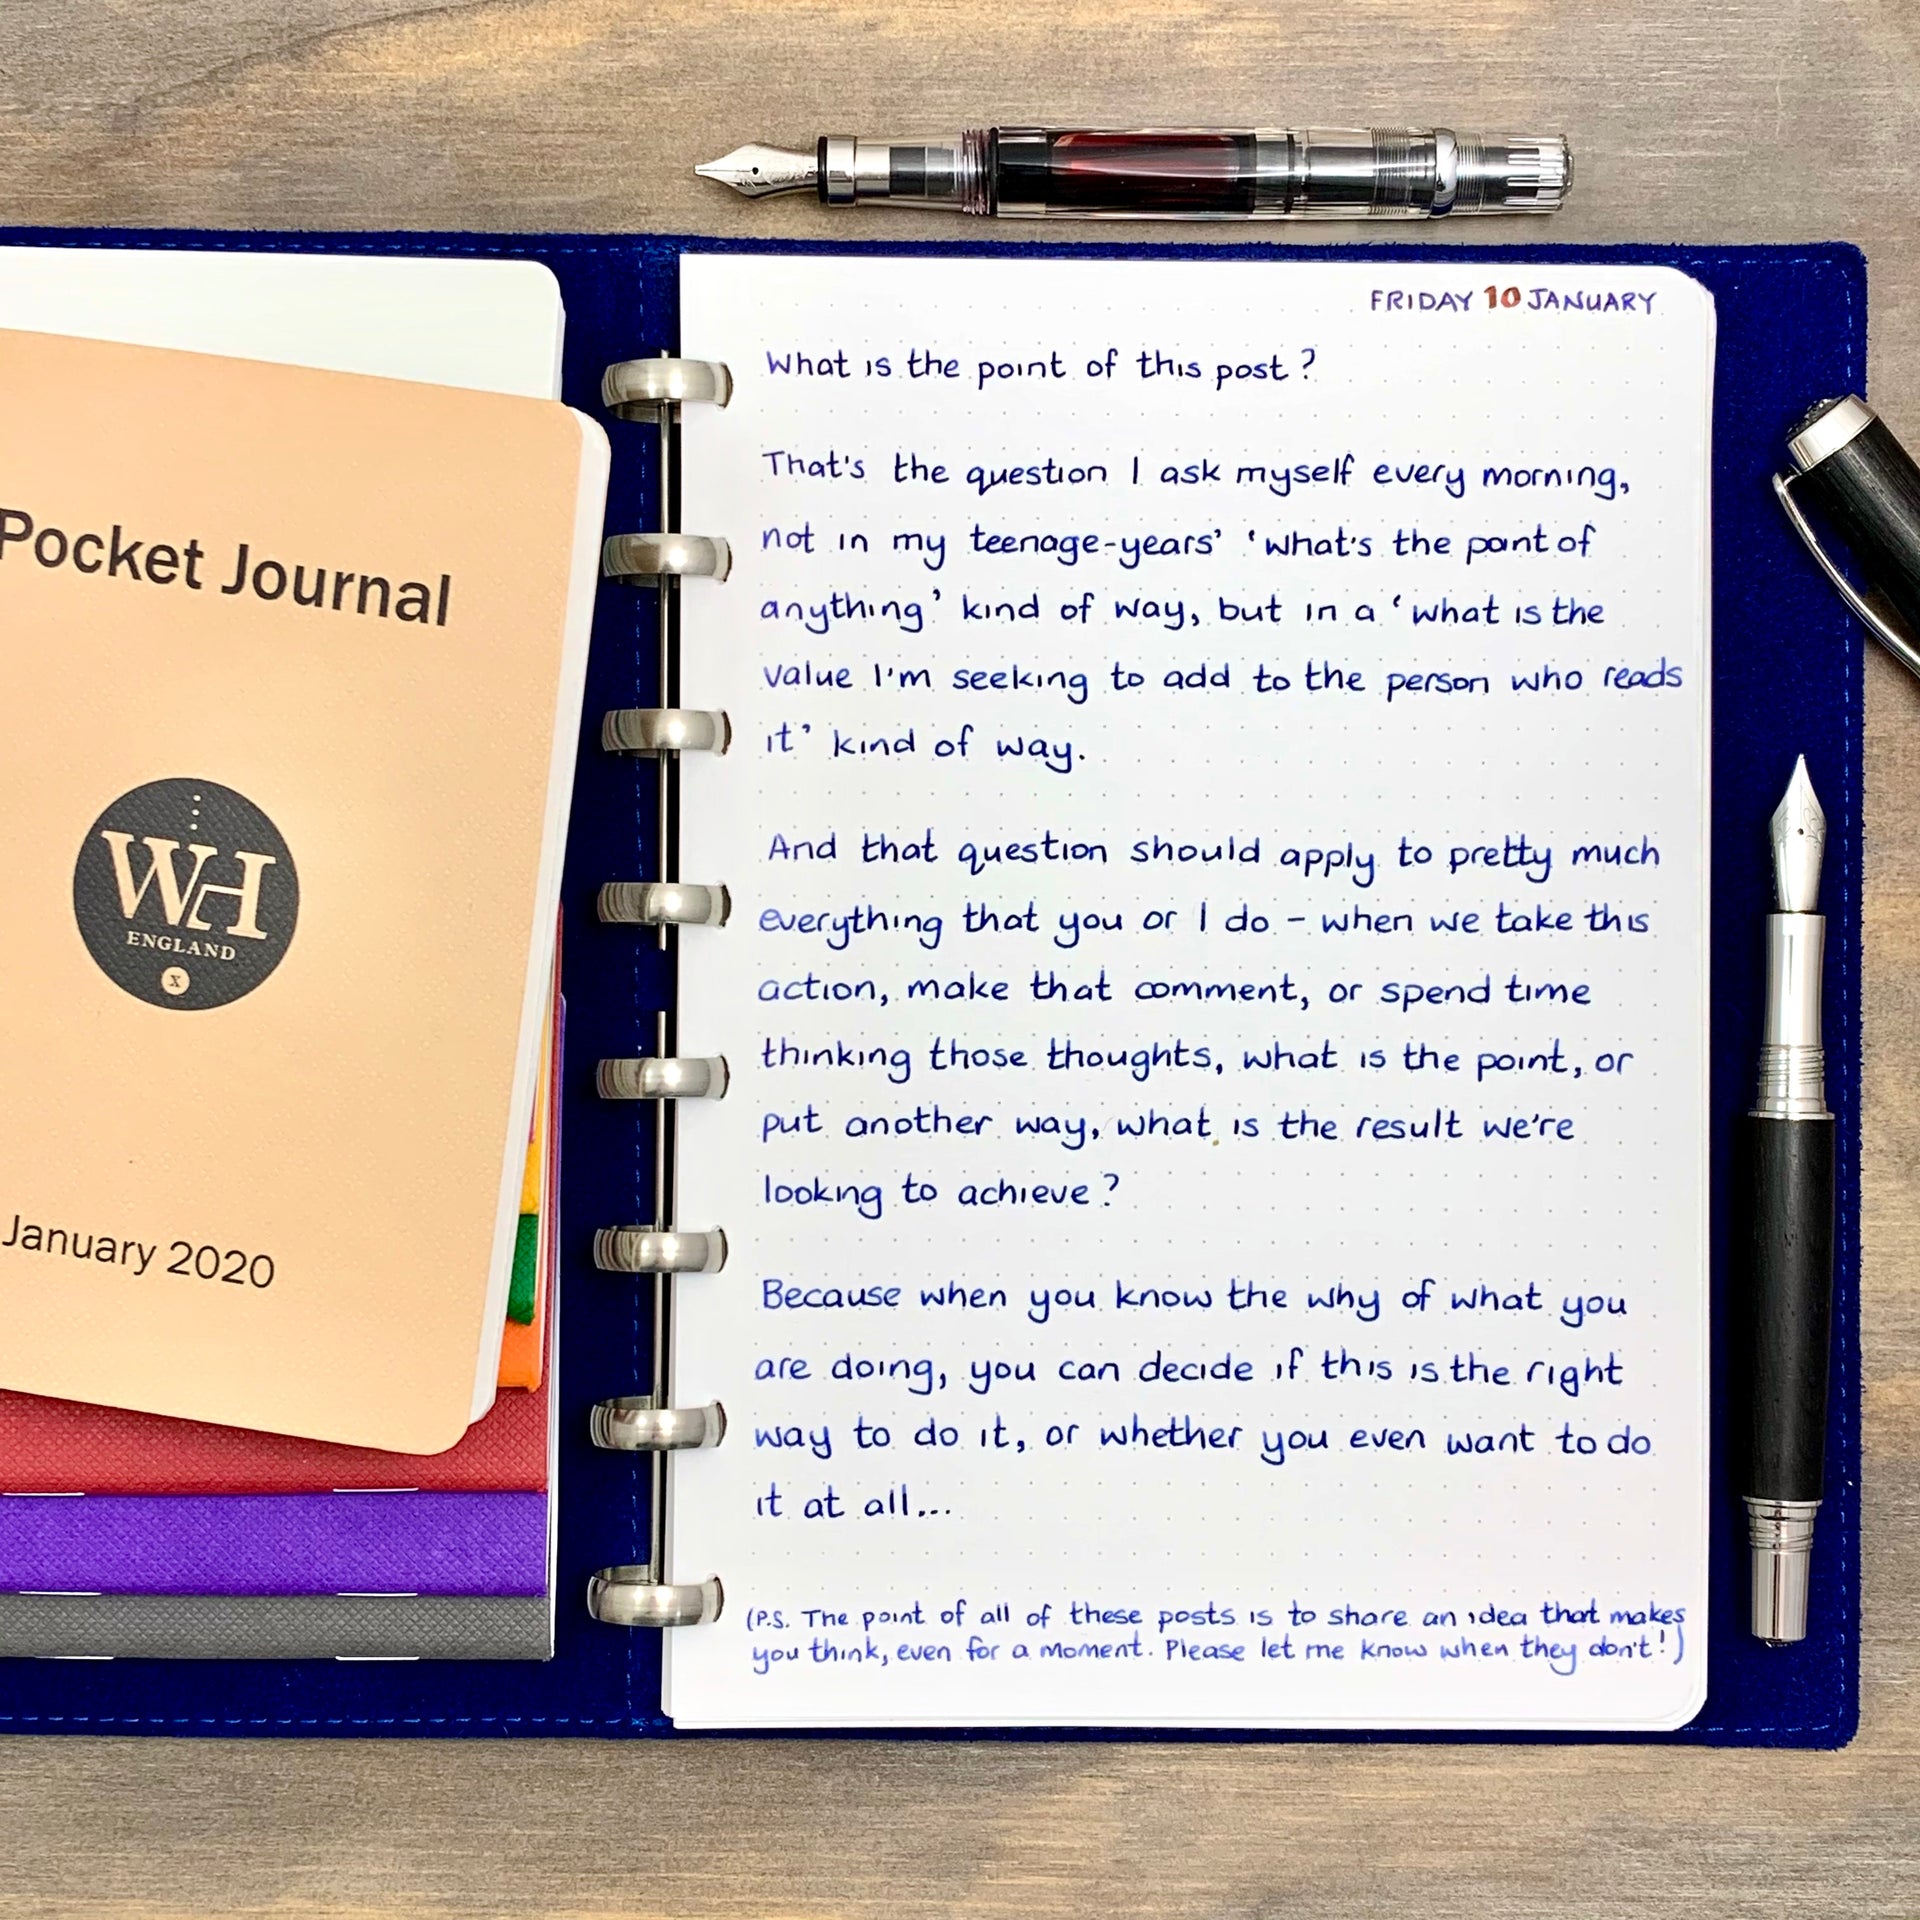 Pocket Journal
WH
ENGLAND
X
January 2020
FRIDAY 10 JANUARY
What is the point of this post?
That's the question I ask myself every morning,
not in my teenage-years' 'what's the point of
anything' kind of way, but in a 'what is the
value I'm seeking to add to the person who reads
it' kind of way.
And that question should apply to pretty much
everything that you or I do - when we take this
action, make that comment, or spend time
thinking those thoughts, what is the point, or
put another way, what is the result we're
looking to achieve?
Because when you know the why of what you
are doing, you can decide if this is the right
way to do it, or whether you even want to do
it at all...
(P.S. The point of all of these posts is to share an idea that makes
you think, even for a moment. Please let me know when they don't!)